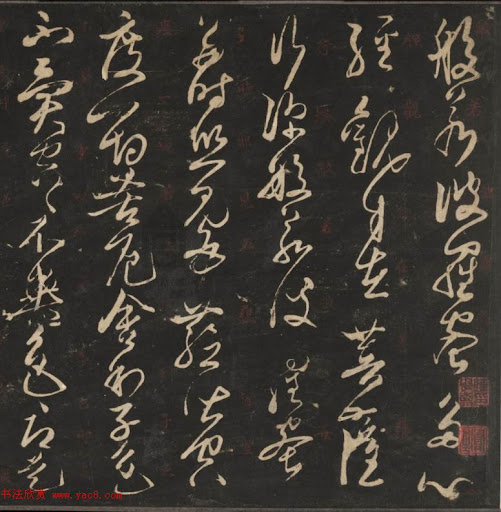 般若波羅蜜多心
經觀自在菩薩
行深般若波羅蜜
多時照見五蘊皆空
度一切苦厄舍利子色
不異空〻不異色〻即是
书法欣赏 www.yac8.com